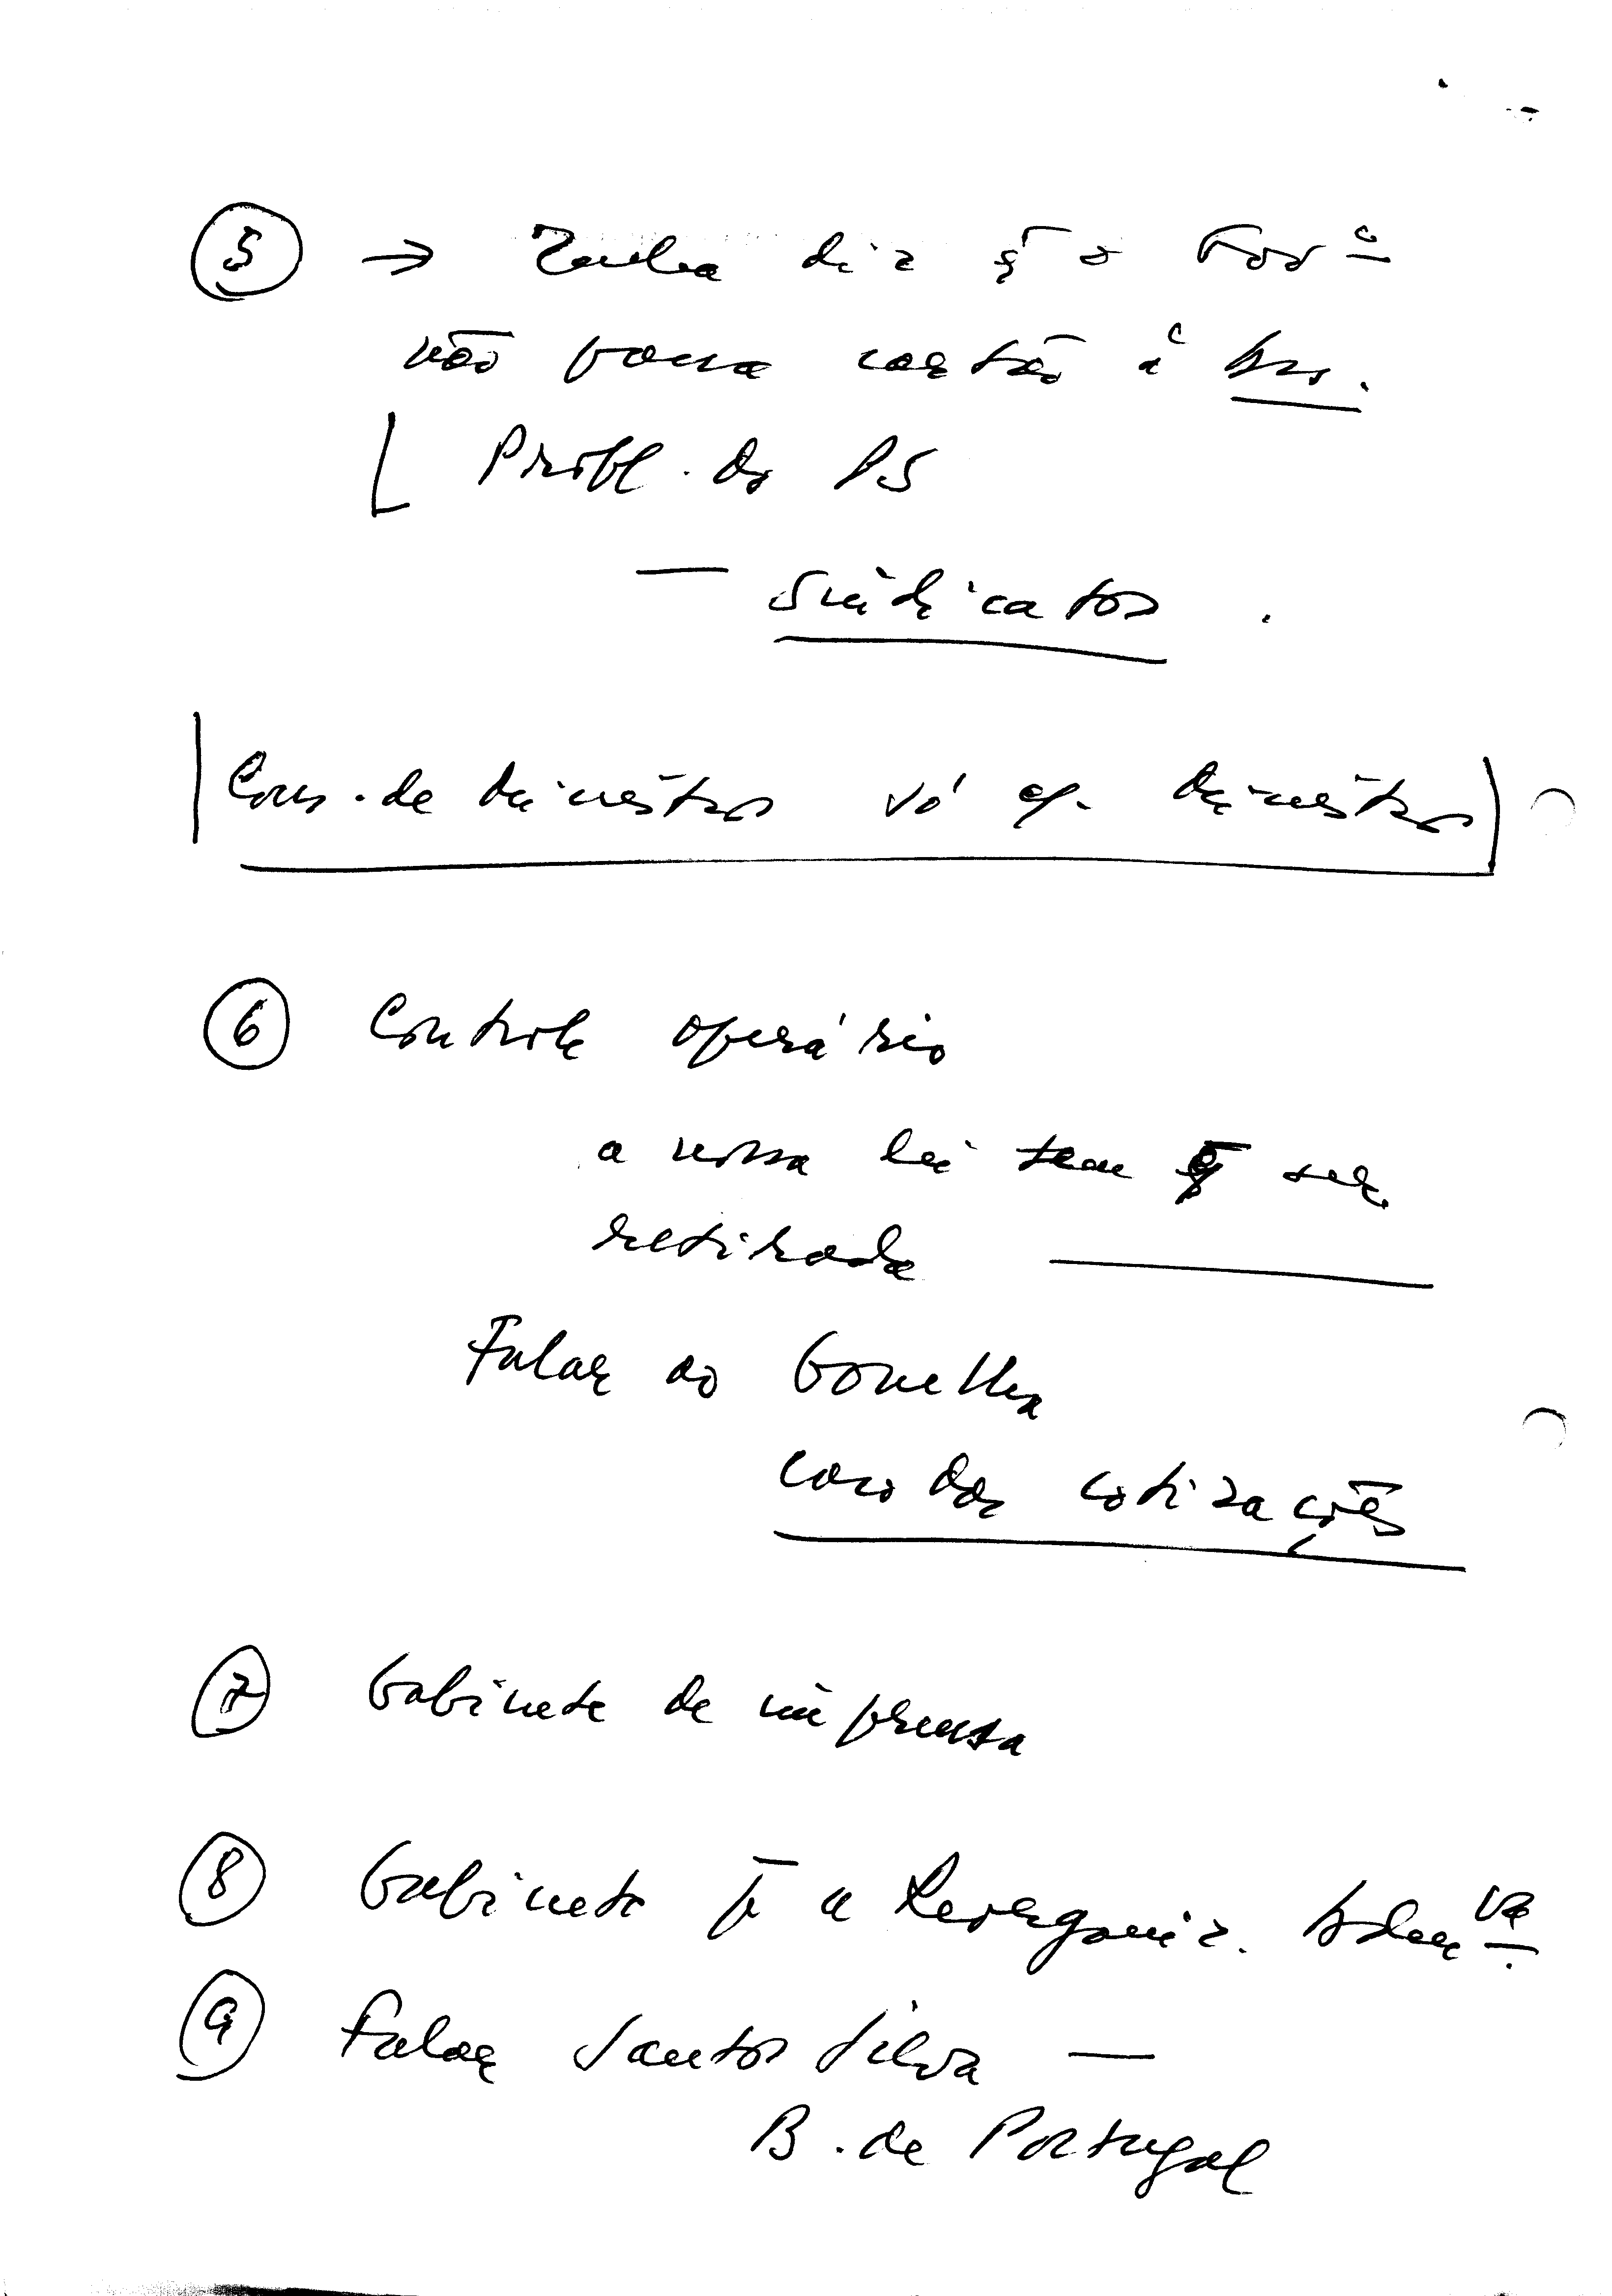 ⑤ → Zenha diz q̄ o Gov.º
não passa cartão à
[ Probl. do PS
— Sindicatos .
| Cons. de Ministros só c/ Ministros |
⑥ Controle operário
a nossa lei tem q̄ ser
retirada ———
Falar ao Gonelha
caso das cotizações
⑦ Gabinete de imprensa
⑧ Gabinete p̄ a Reorganiz.
⑨ Falar Santos Silva —
B. de Portugal